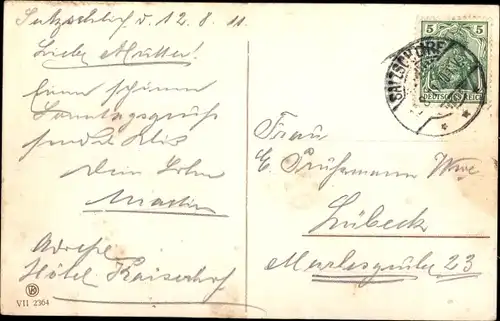 Salzschlirf d. 12.8.11
Liebe Mutter!
Einen schönen
Sonntagsgruß
sendet Dir
Dein Sohn
Martin
Adresse
Hôtel Kaiserhof
VII 2364
SALZSCHLIRF
5 5
DEUTSCHES REICH
Frau
E. Wwe
Lübeck
23